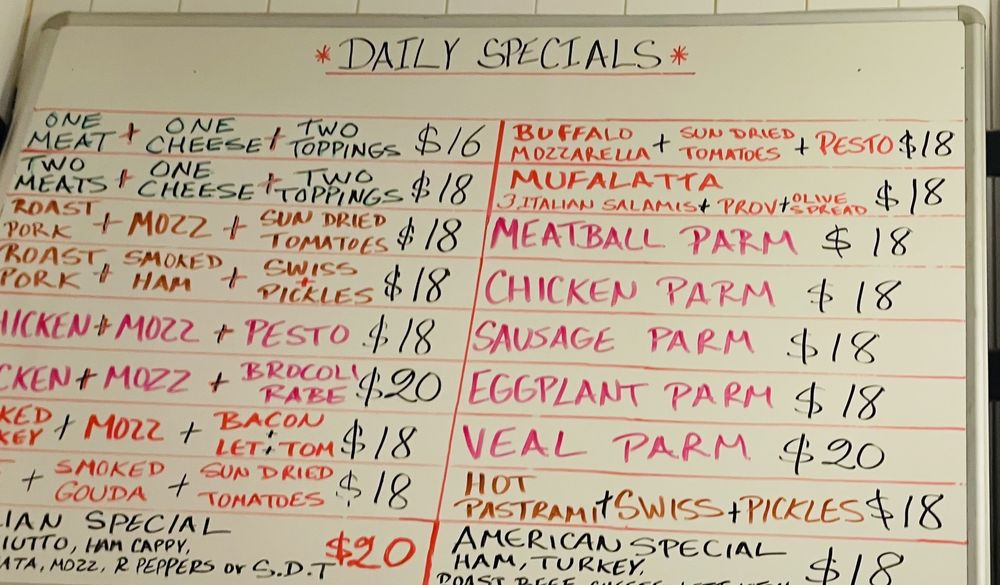 * DAILY SPECIALS *
ONE MEAT + ONE CHEESE + TWO TOPPINGS $16
TWO MEATS + ONE CHEESE + TWO TOPPINGS $18
ROAST PORK + MOZZ + SUN DRIED TOMATOES $18
ROAST PORK + SMOKED HAM + SWISS + PICKLES $18
HICKEN + MOZZ + PESTO $18
CKEN + MOZZ + BROCOLI RABE $20
KED KEY + MOZZ + BACON LET + TOM $18
+ SMOKED GOUDA + SUN DRIED TOMATOES $18
IAN SPECIAL
IUTTO, HAM CAPPY, $20
ATA, MOZZ, R PEPPERS or S.D.T
BUFFALO MOZZARELLA + SUN DRIED TOMATOES + PESTO $18
MUFALATTA $18
3 ITALIAN SALAMIS + PROV + OLIVE SPREAD
MEATBALL PARM $18
CHICKEN PARM $18
SAUSAGE PARM $18
EGGPLANT PARM $18
VEAL PARM $20
HOT PASTRAMI + SWISS + PICKLES $18
AMERICAN SPECIAL
HAM, TURKEY, $18
ROAST BEEF